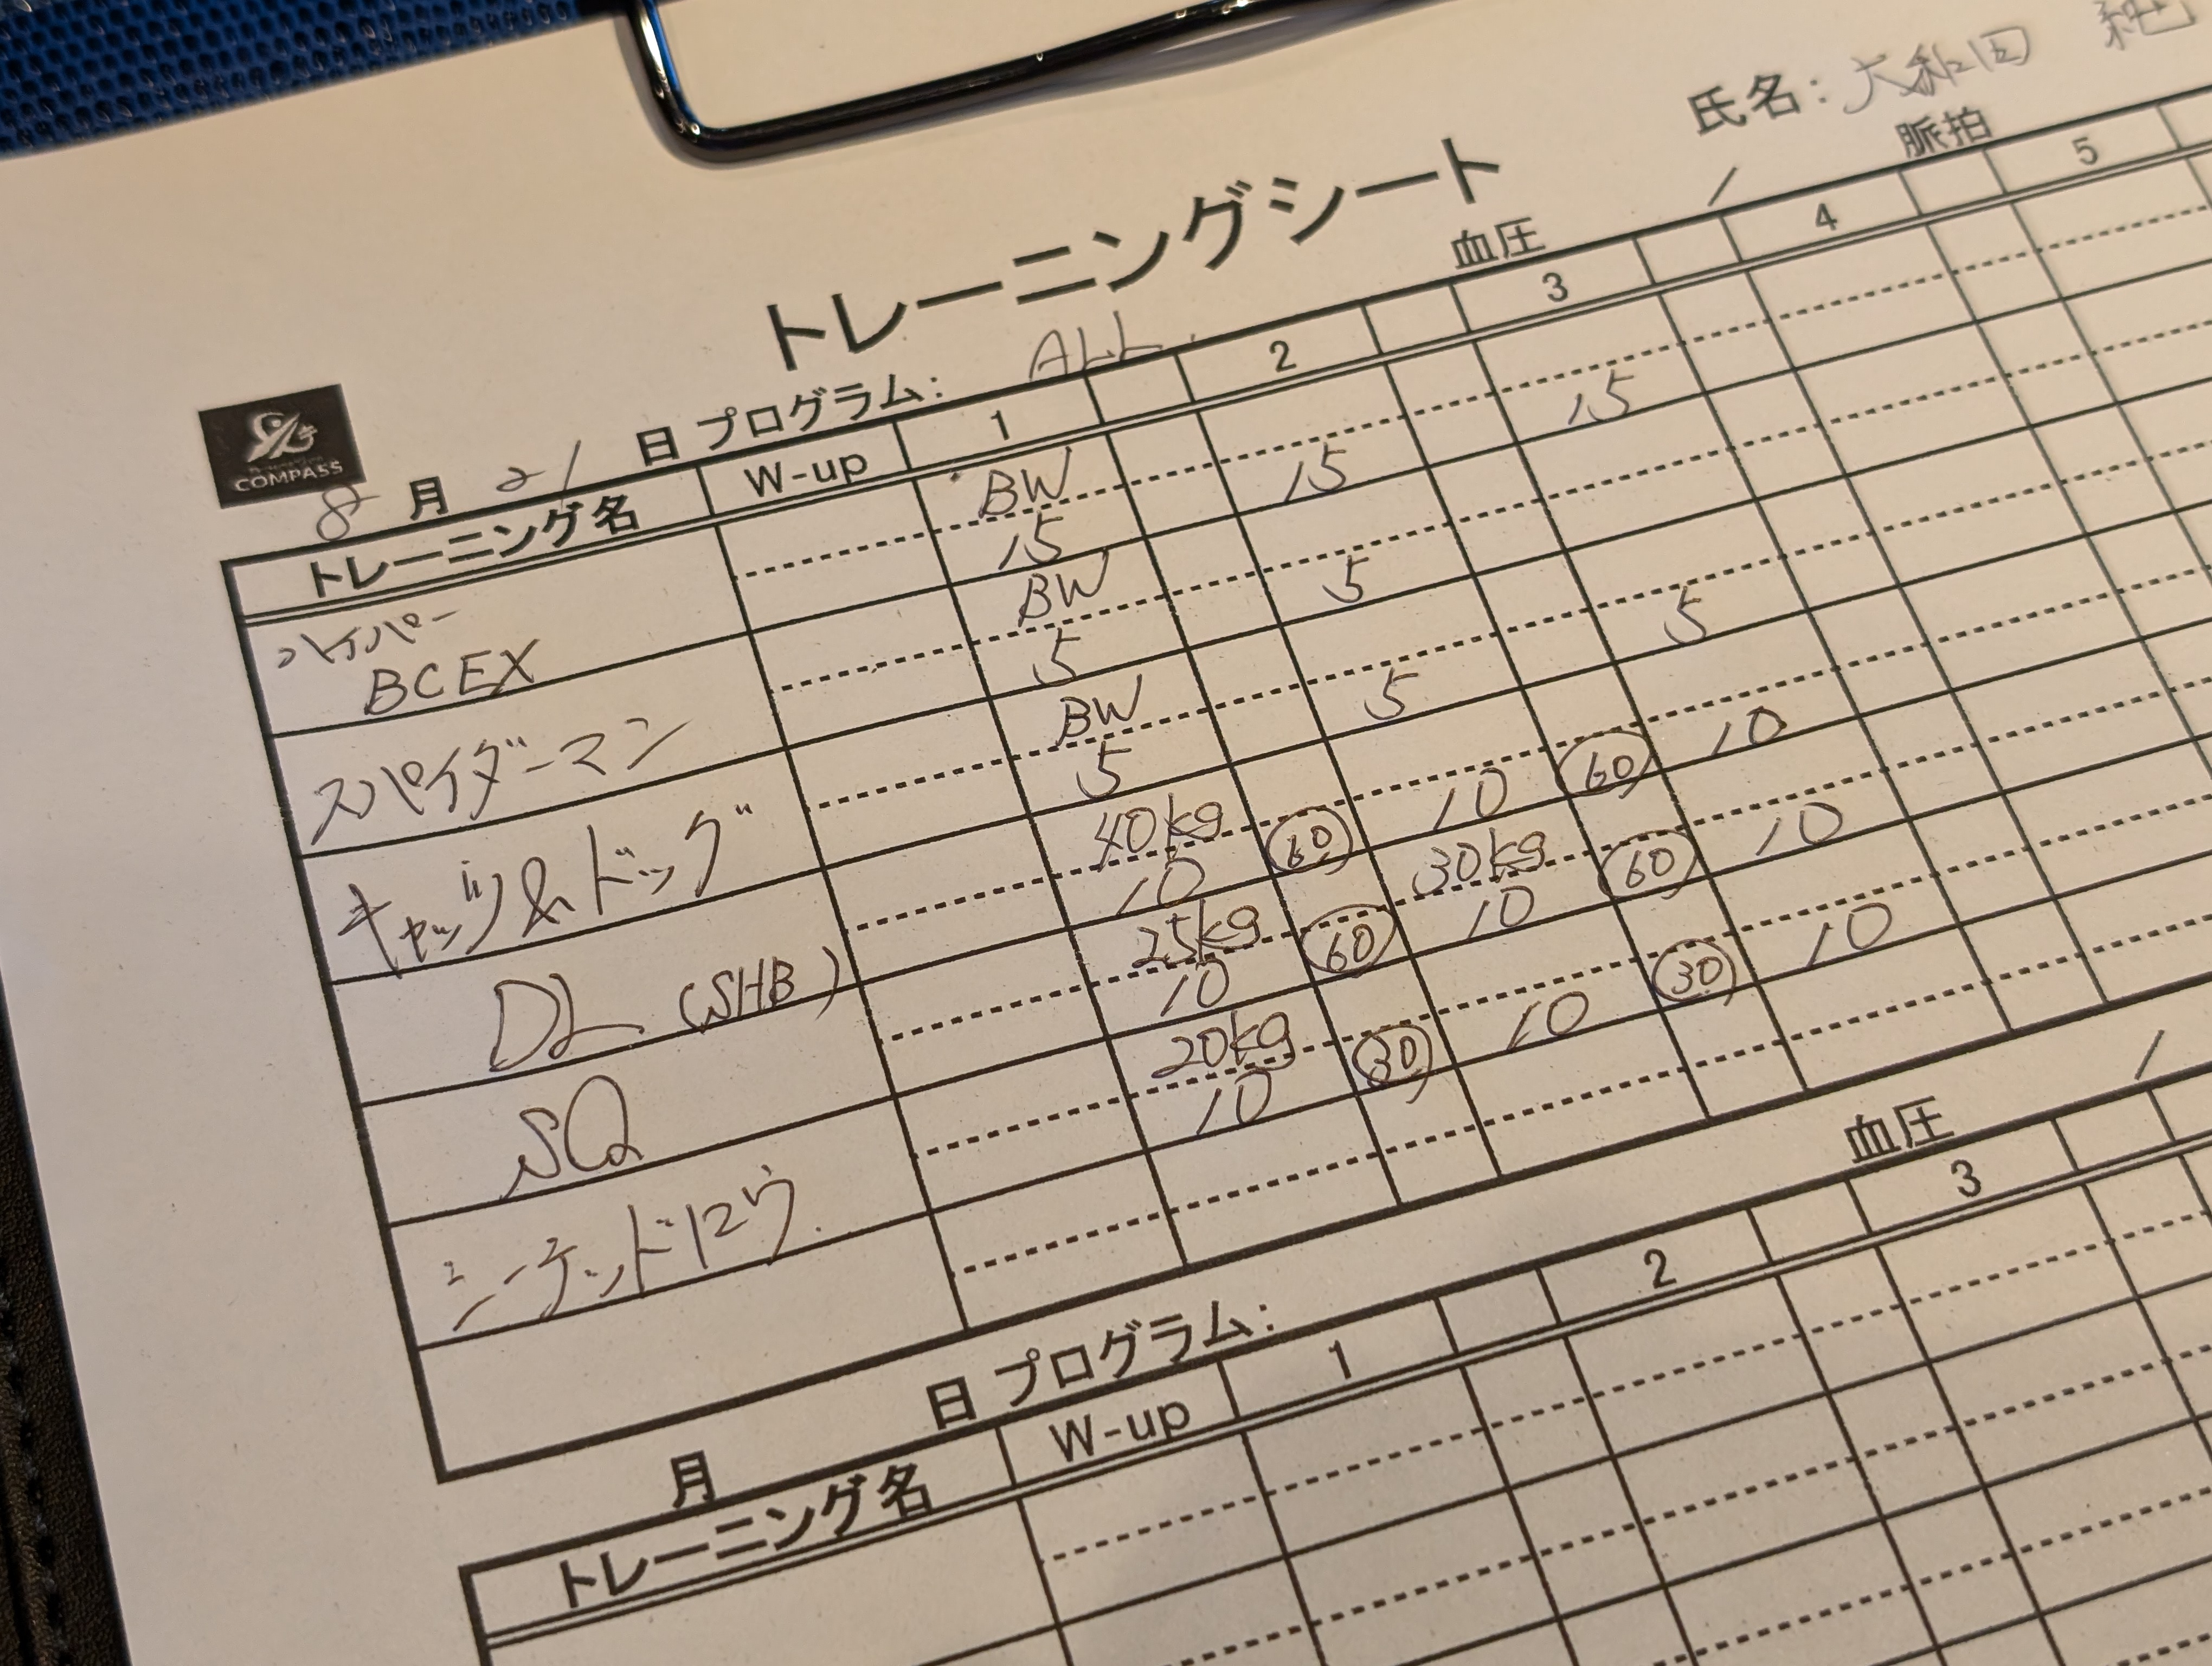 氏名：大和田 純
トレーニングシート
COMPASS
8月 21 日 プログラム： ALL 血圧 / 脈拍
トレーニング名 W-up 1 2 3 4 5
ハイパー BCEX BW 15 15 15
スパイダーマン BW 5 5
キャッツ&ドッグ BW 5 5 5
DL (SHB) 40kg 10 60 10 60 10
SQ 25kg 10 60 30kg 10 60 10
シーテッドロウ. 20kg 10 30 10 30 10
月 日 プログラム： 血圧 /
トレーニング名 W-up 1 2 3